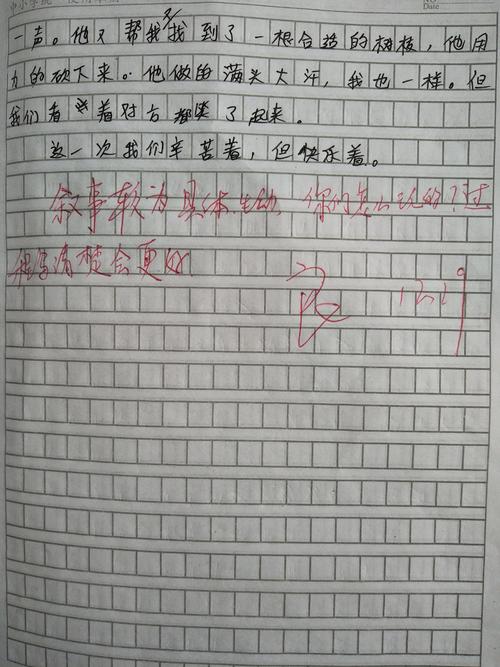 中小学
No
Date
一声。他又帮我找到了一根合适的树枝，他用
力的砍下来。他做的满头大汗，我也一样。但
我们看着对方都笑了起来。
这一次我们辛苦着，但快乐着。
叙事较为具体生动，你们怎么玩的？过
程写清楚会更好
良 12.29